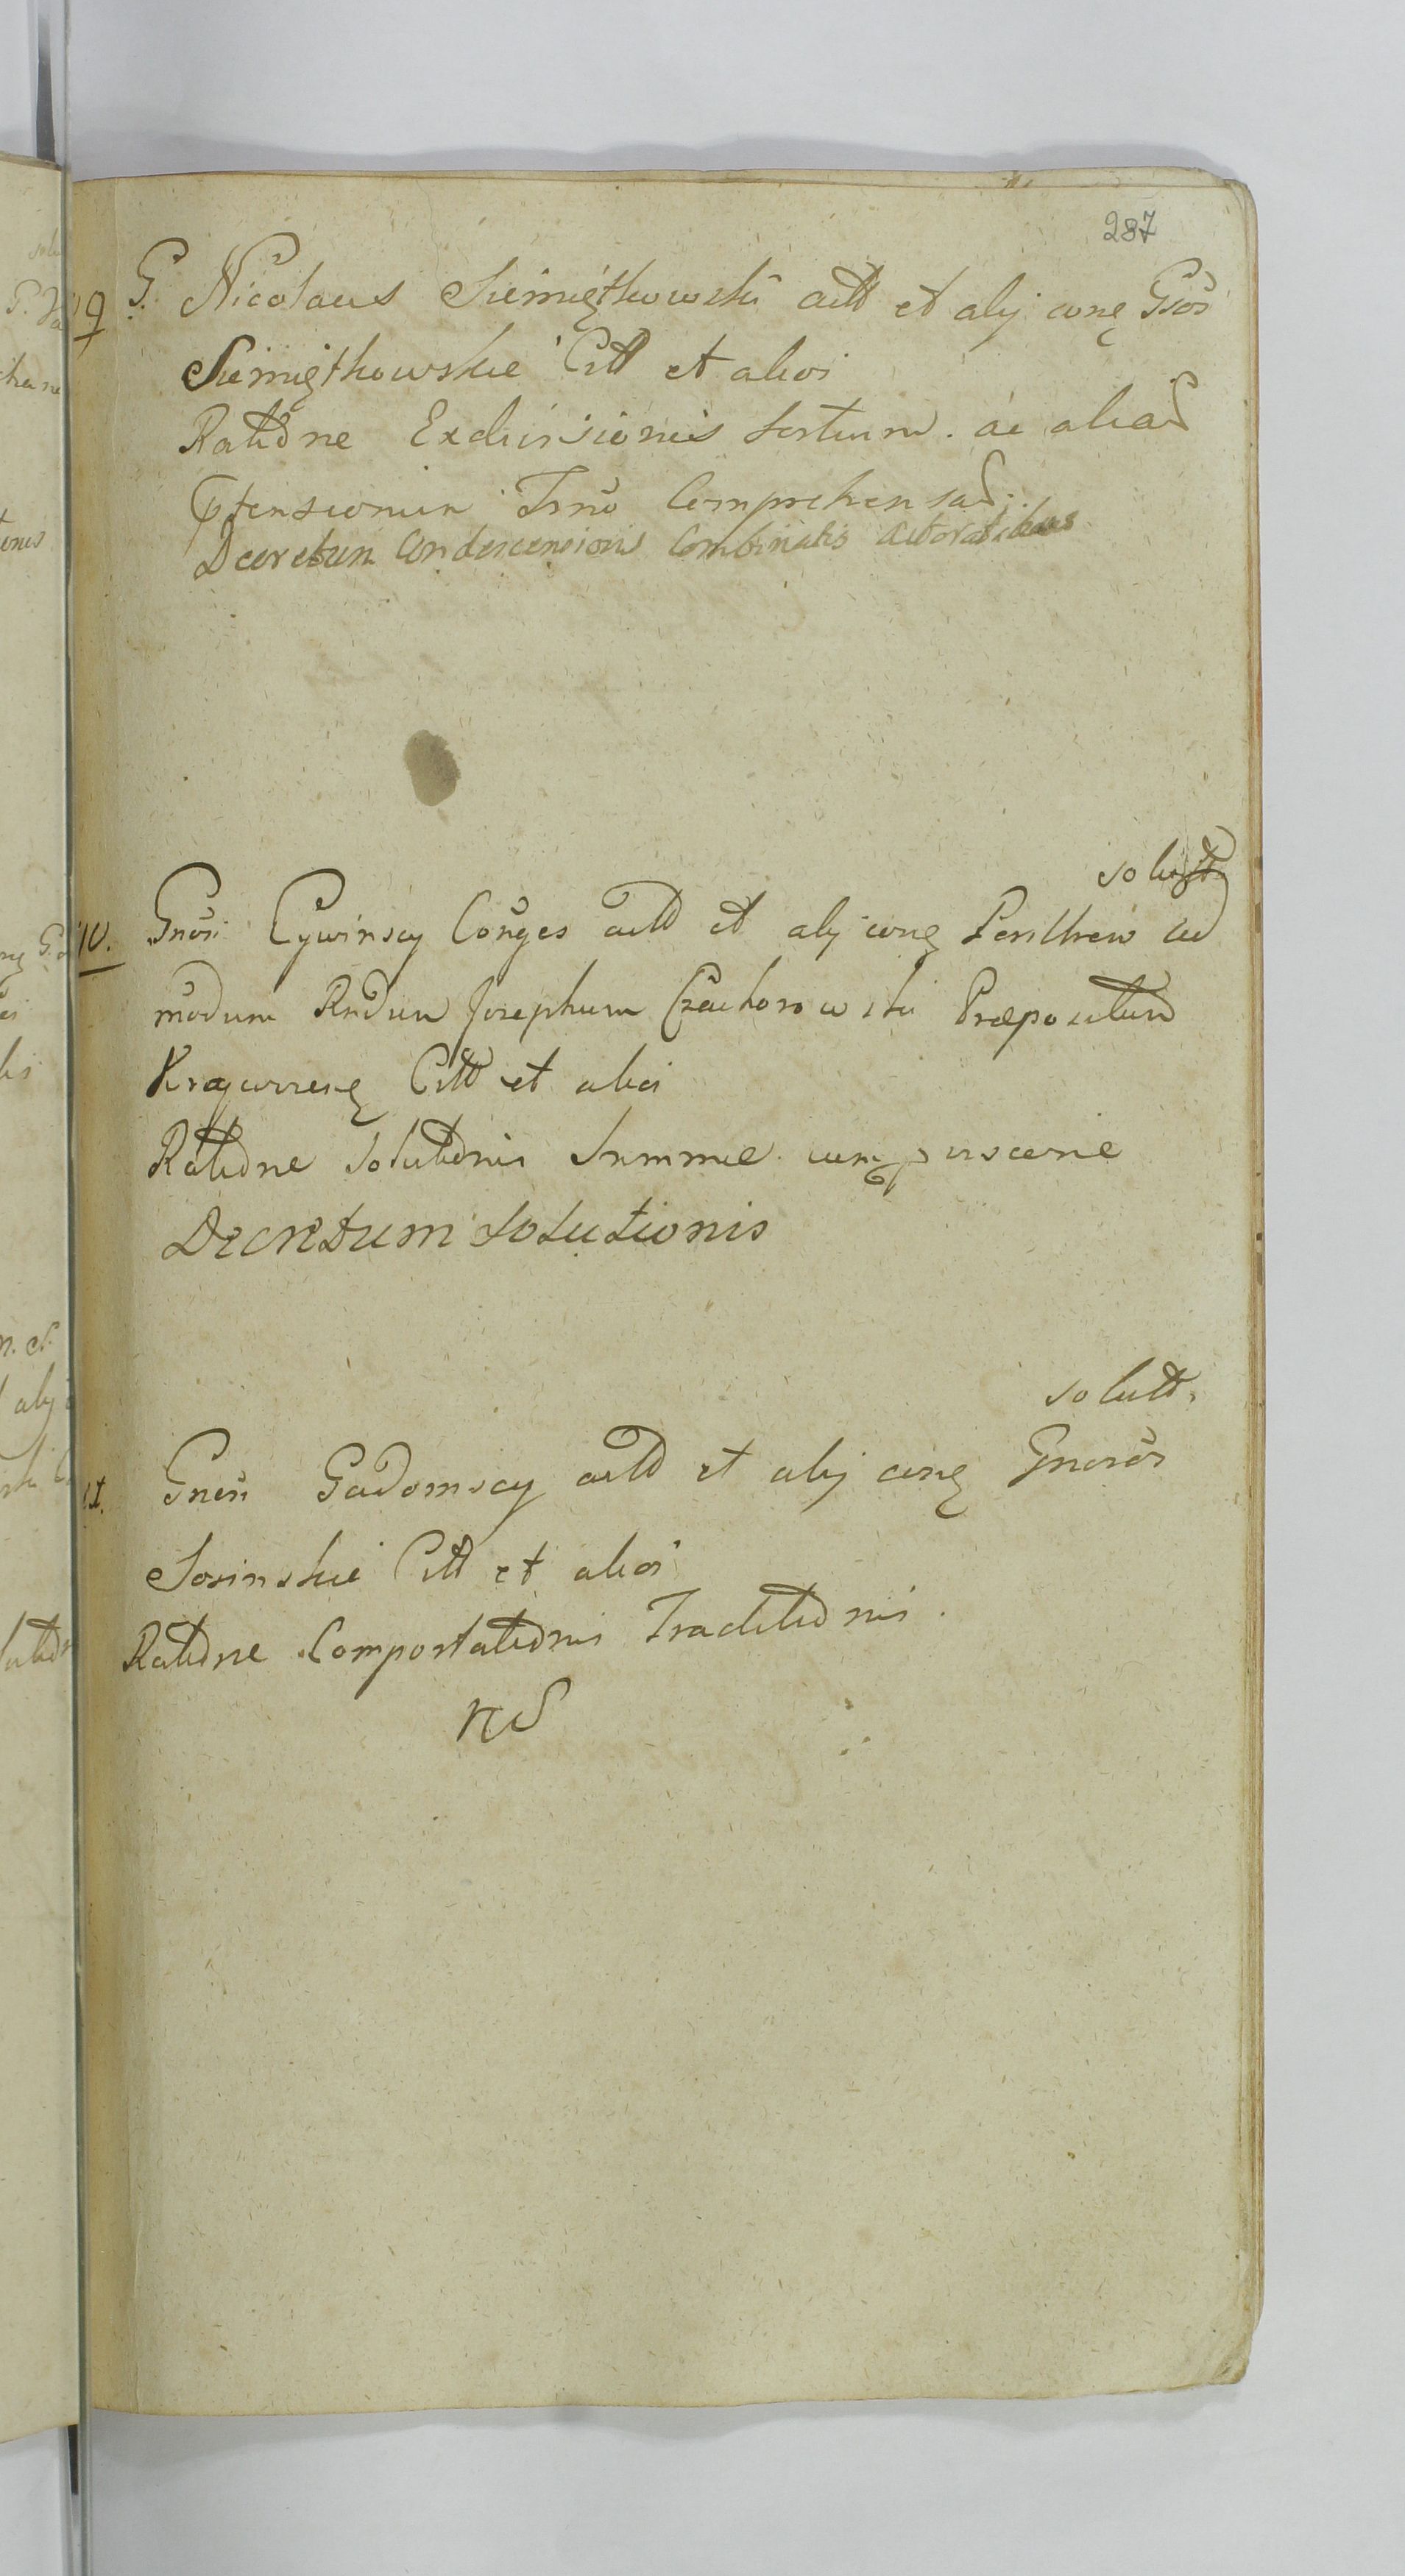 287
9 G. Nicolaus Siemiętkowski actt et alij conę Gsos
Siemiętkowskie Citt et alios
Ratõne Exdivisionis sortium ac aliaŕ
Ptensionum Trno Comprehensaŕ.
Decretum Condescensionis Combinatis Actoratibus
solutt
10. Gnõsi Cywinscy Conges actt et alij conę Perillrem ad
modum Rndum Josephum Czachorowski Præpositum
Citt et alios
Ratõne Solutõnis Summae
Decretum Solutionis
solutt.
11. Gnõsi Gadomscy actt et alij conę Gnosos
Sosinskie Citt et alios
Ratõne Comportatõnis Traditõnis.
NS